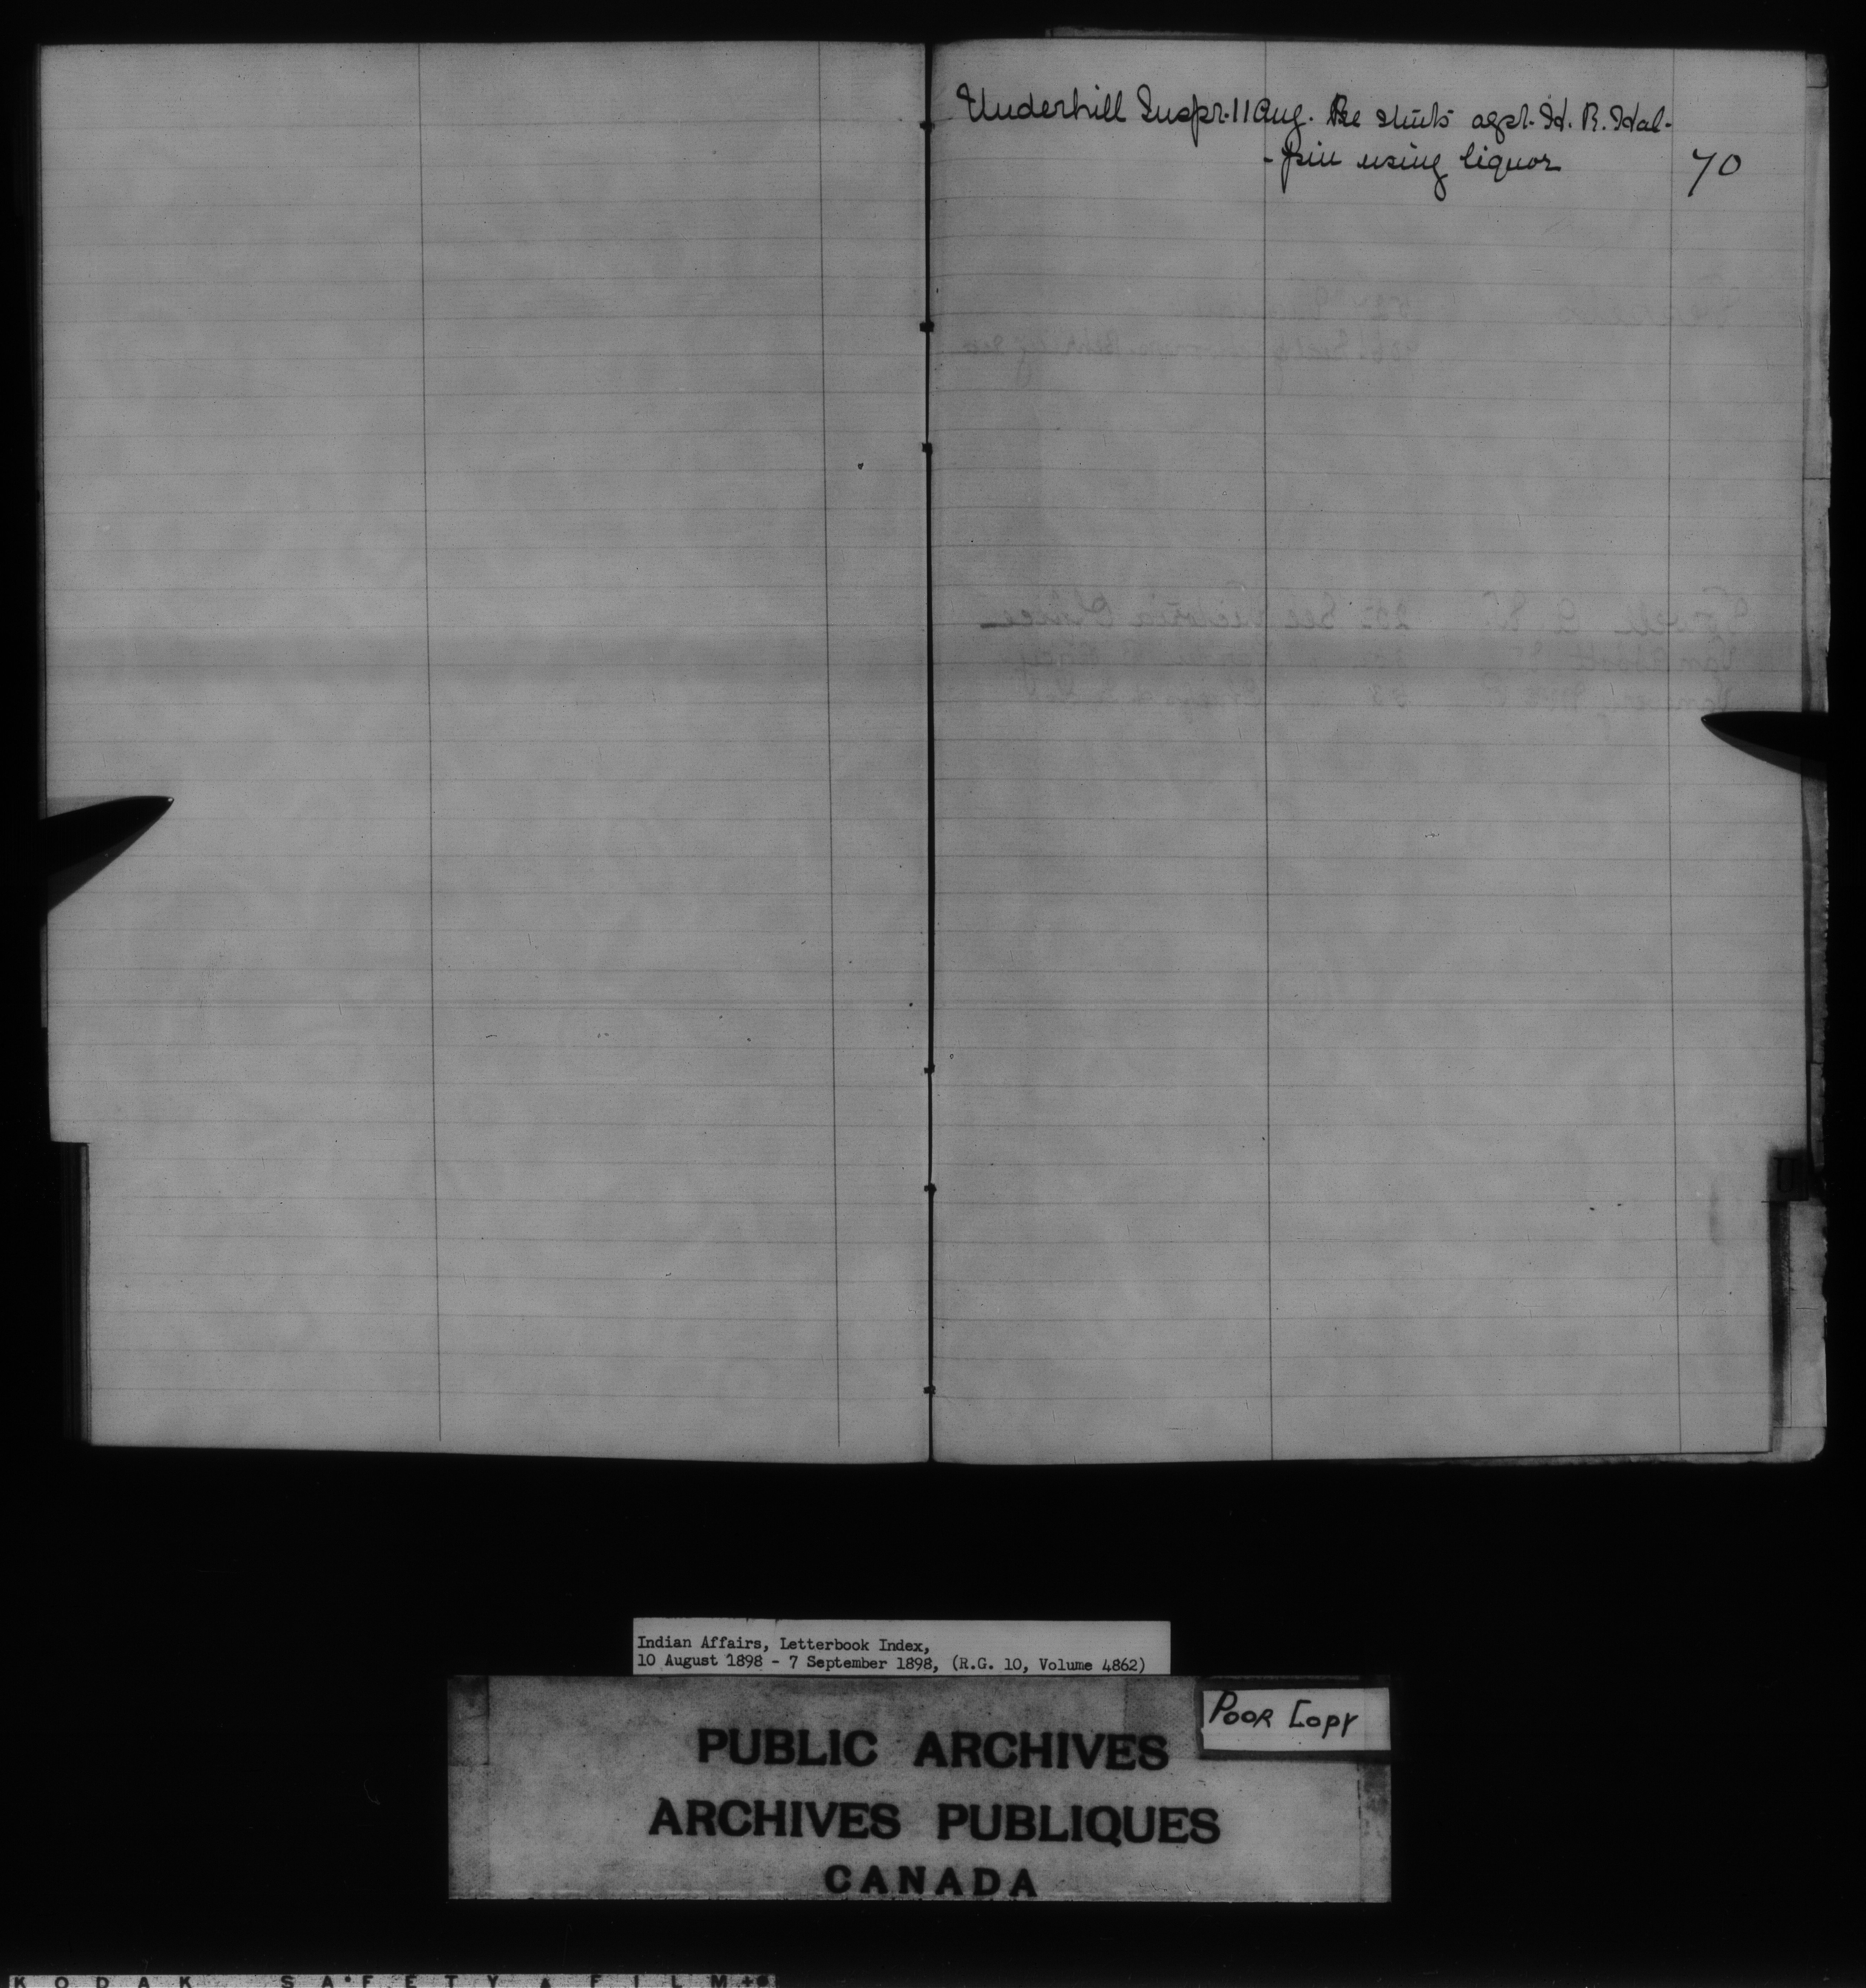 Underhill Inspr. 11 Aug. Re stmts agst. H. R. Hal-
-pin using liquor 70
U
Indian Affairs, Letterbook Index,
10 August 1898 - 7 September 1898, (R.G. 10, Volume 4862)
POOR COPY
PUBLIC ARCHIVES
ARCHIVES PUBLIQUES
CANADA
KODAK SAFETY FILM